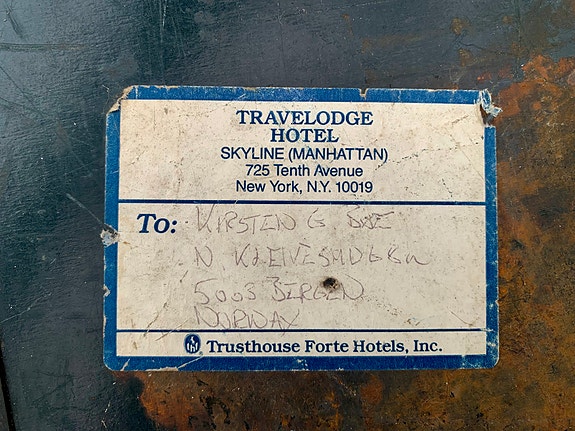 TRAVELODGE
HOTEL
SKYLINE (MANHATTAN)
725 Tenth Avenue
New York, N.Y. 10019
To: KIRSTEN G.
N.
5003 BERGEN
NORWAY
Trusthouse Forte Hotels, Inc.